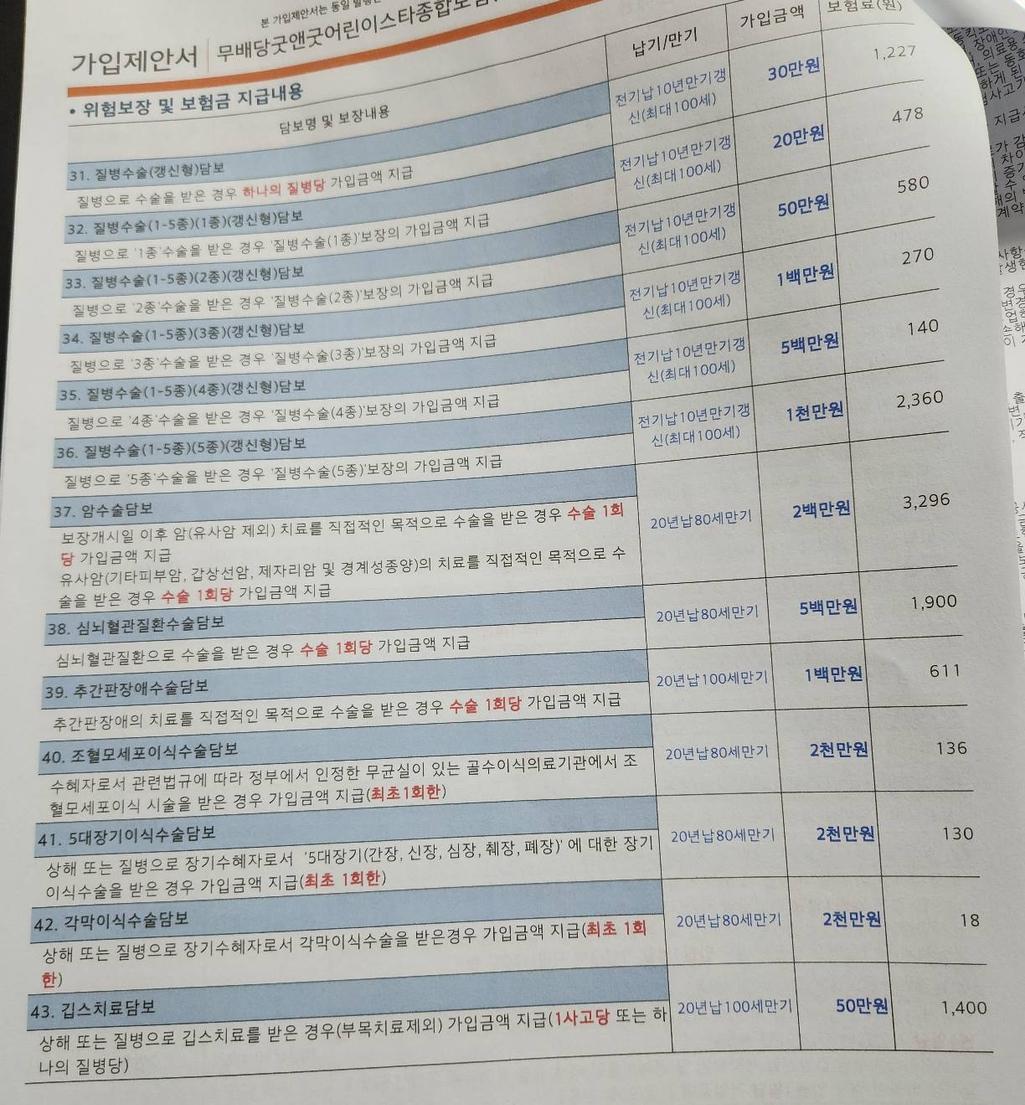 본 가입제안서는 동일
가입제안서 | 무배당굿앤굿어린이스타종합보험
• 위험보장 및 보험금 지급내용
담보명 및 보장내용 납기/만기 가입금액 보험료(원)
31. 질병수술(갱신형)담보
질병으로 수술을 받은 경우 하나의 질병당 가입금액 지급
전기납10년만기갱
신(최대100세)
30만원 1,227
32. 질병수술(1-5종)(1종)(갱신형)담보
질병으로 '1종'수술을 받은 경우 '질병수술(1종)'보장의 가입금액 지급
전기납10년만기갱
신(최대100세)
20만원 478
33. 질병수술(1-5종)(2종)(갱신형)담보
질병으로 '2종'수술을 받은 경우 '질병수술(2종)'보장의 가입금액 지급
전기납10년만기갱
신(최대100세)
50만원 580
34. 질병수술(1-5종)(3종)(갱신형)담보
질병으로 '3종'수술을 받은 경우 '질병수술(3종)'보장의 가입금액 지급
전기납10년만기갱
신(최대100세)
1백만원 270
35. 질병수술(1-5종)(4종)(갱신형)담보
질병으로 '4종'수술을 받은 경우 '질병수술(4종)'보장의 가입금액 지급
전기납10년만기갱
신(최대100세)
5백만원 140
36. 질병수술(1-5종)(5종)(갱신형)담보
질병으로 '5종'수술을 받은 경우 '질병수술(5종)'보장의 가입금액 지급
전기납10년만기갱
신(최대100세)
1천만원 2,360
37. 암수술담보
보장개시일 이후 암(유사암 제외) 치료를 직접적인 목적으로 수술을 받은 경우 수술 1회
당 가입금액 지급
유사암(기타피부암, 갑상선암, 제자리암 및 경계성종양)의 치료를 직접적인 목적으로 수
술을 받은 경우 수술 1회당 가입금액 지급
20년납80세만기 2백만원 3,296
38. 심뇌혈관질환수술담보
심뇌혈관질환으로 수술을 받은 경우 수술 1회당 가입금액 지급
20년납80세만기 5백만원 1,900
39. 추간판장애수술담보
추간판장애의 치료를 직접적인 목적으로 수술을 받은 경우 수술 1회당 가입금액 지급
20년납100세만기 1백만원 611
40. 조혈모세포이식수술담보
수혜자로서 관련법규에 따라 정부에서 인정한 무균실이 있는 골수이식의료기관에서 조
혈모세포이식 시술을 받은 경우 가입금액 지급(최초1회한)
20년납80세만기 2천만원 136
41. 5대장기이식수술담보
상해 또는 질병으로 장기수혜자로서 '5대장기(간장, 신장, 심장, 췌장, 폐장)' 에 대한 장기
이식수술을 받은 경우 가입금액 지급(최초 1회한)
20년납80세만기 2천만원 130
42. 각막이식수술담보
상해 또는 질병으로 장기수혜자로서 각막이식수술을 받은경우 가입금액 지급(최초 1회
한)
20년납80세만기 2천만원 18
43. 깁스치료담보
상해 또는 질병으로 깁스치료를 받은 경우(부목치료제외) 가입금액 지급(1사고당 또는 하
나의 질병당)
20년납100세만기 50만원 1,400